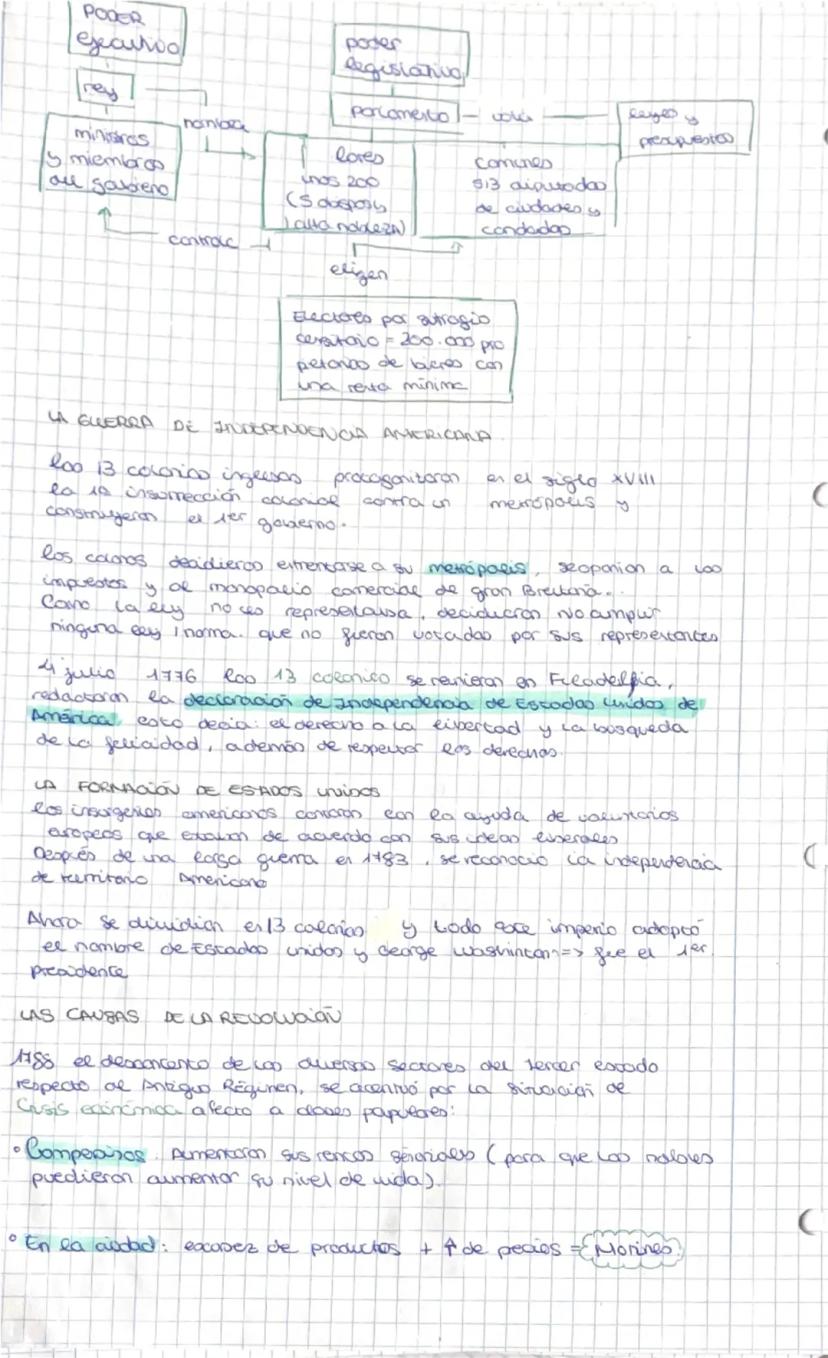 PODER
ejecutivo
poder
legislativo
rey
nombra
parlamento
vota
leyes y
presupuestos
ministros
y miembros
del gobierno
lores
unos 200
(S obispos y
alta nobleza)
comunes
513 diputados
de ciudades y
condados
controla
eligen
Electores por sufragio
censitario = 200.000 pro
petarios de bienes con
una renta mínima
LA GUERRA DE INDEPENDENCIA AMERICANA
las 13 colonias inglesas protagonizaron en el siglo XVIII
la 1ª insurrección colonial contra un metrópolis y
construyeron el 1er gobierno.
los colonos decidieron enfrentarse a su metrópolis, se oponían a los
impuestos y al monopolio comercial de gran Bretaña.
Como la ley no les representaba, decidieron no cumplir
ninguna ley / norma. que no fueran votadas por sus representantes
4 julio 1776 las 13 colonias se reunieron en Filadelfia,
redactaron la declaración de Independencia de Estados Unidos de
América, esto decía: el derecho a la libertad y la búsqueda
de la felicidad, además de respetar los derechos.
LA FORMACIÓN DE ESTADOS UNIDOS
los insurgentes americanos contaron con la ayuda de voluntarios
europeos que estaban de acuerdo con sus ideas liberales
Después de una larga guerra en 1783, se reconoció la independencia
de territorio Americano
Ahora se dividían en 13 colonias y todo este imperio adoptó
el nombre de Estados unidos y George Washinton => fue el 1er
presidente
LAS CAUSAS DE LA REVOLUCIÓN
1788 el descontento de los diversos sectores del tercer estado
respecto al Antiguo Régimen, se acentuó por la situación de
Crisis económica afecto a clases populares:
• Campesinos. Aumentaron sus rentas señoriales (para que los nobles
puedieron aumentar su nivel de vida).
• En la ciudad: escasez de productos + ↑ de pecios = Motines.